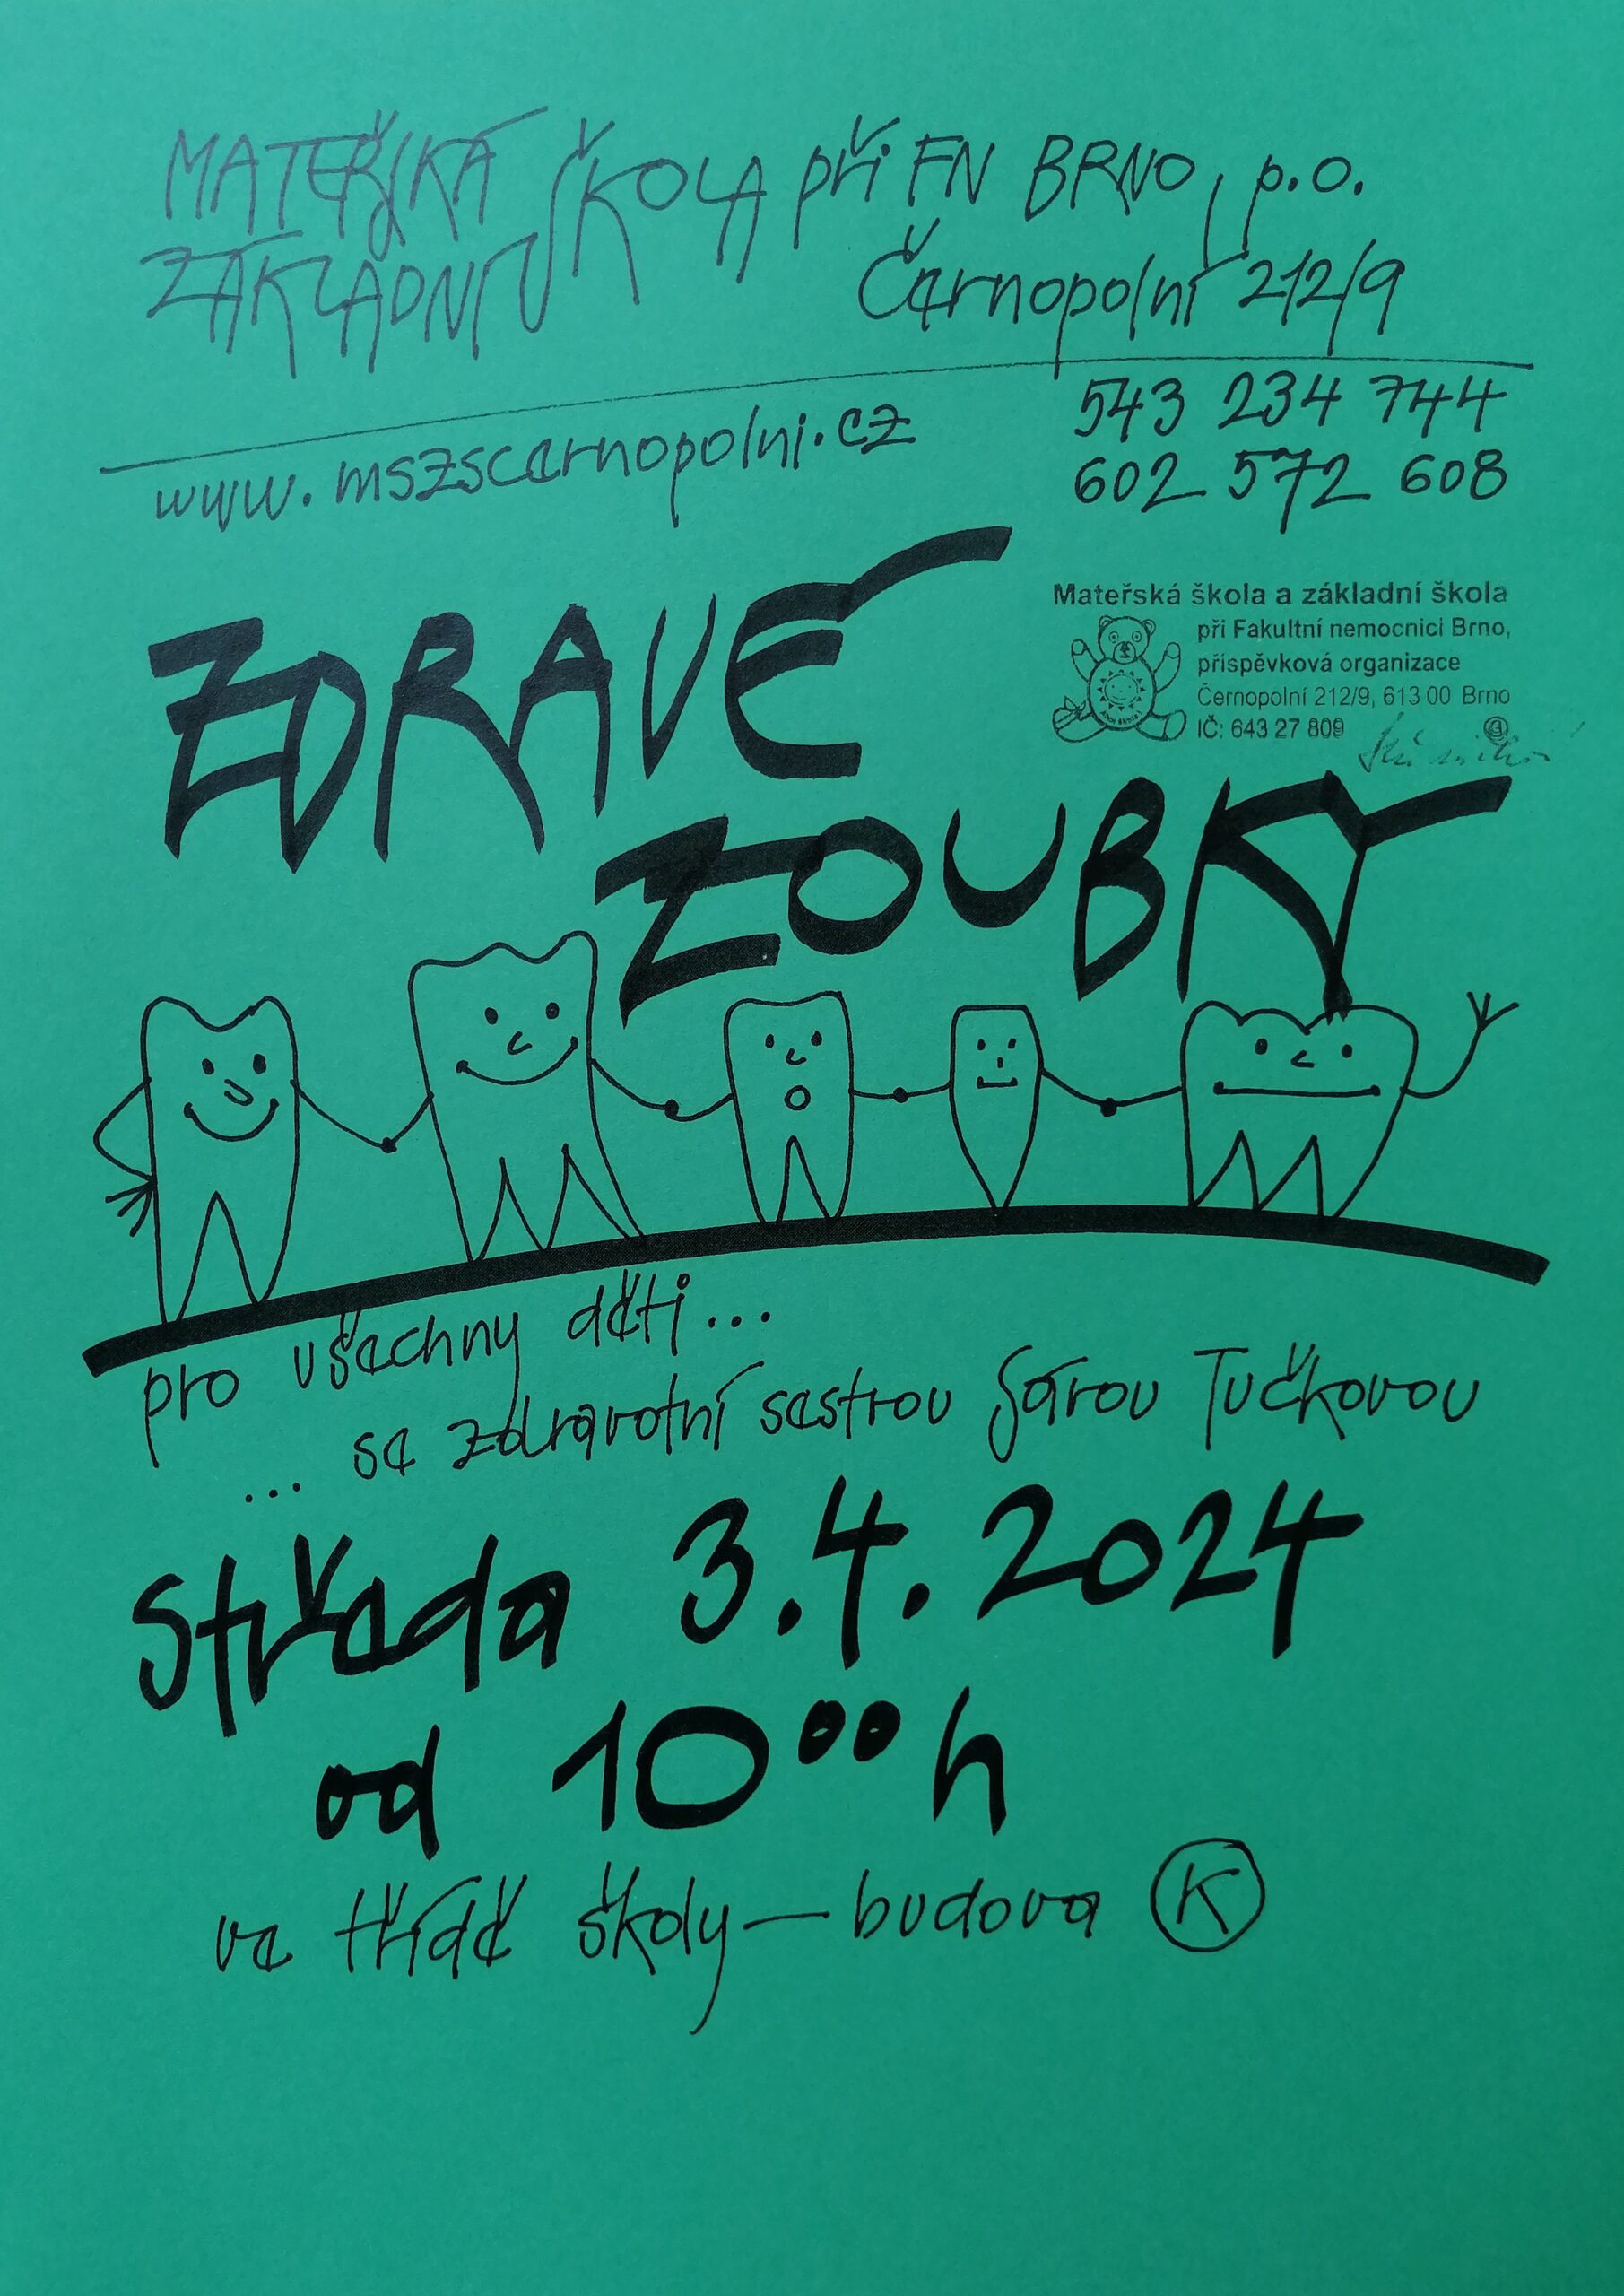 MATEŘSKÁ
ZÁKLADNÍ ŠKOLA při FN BRNO, p.o.
Černopolní 212/9
www.mszscernopolni.cz
543 234 744
602 572 608
ZDRAVÉ
Mateřská škola a základní škola
při Fakultní nemocnici Brno,
příspěvková organizace
Černopolní 212/9, 613 00 Brno
IČ: 643 27 809
ZOUBKY
pro všechny děti...
... se zdravotní sestrou Sárou Tučkovou
středa 3.4.2024
od 10⁰⁰ h
ve třídě školy — budova K